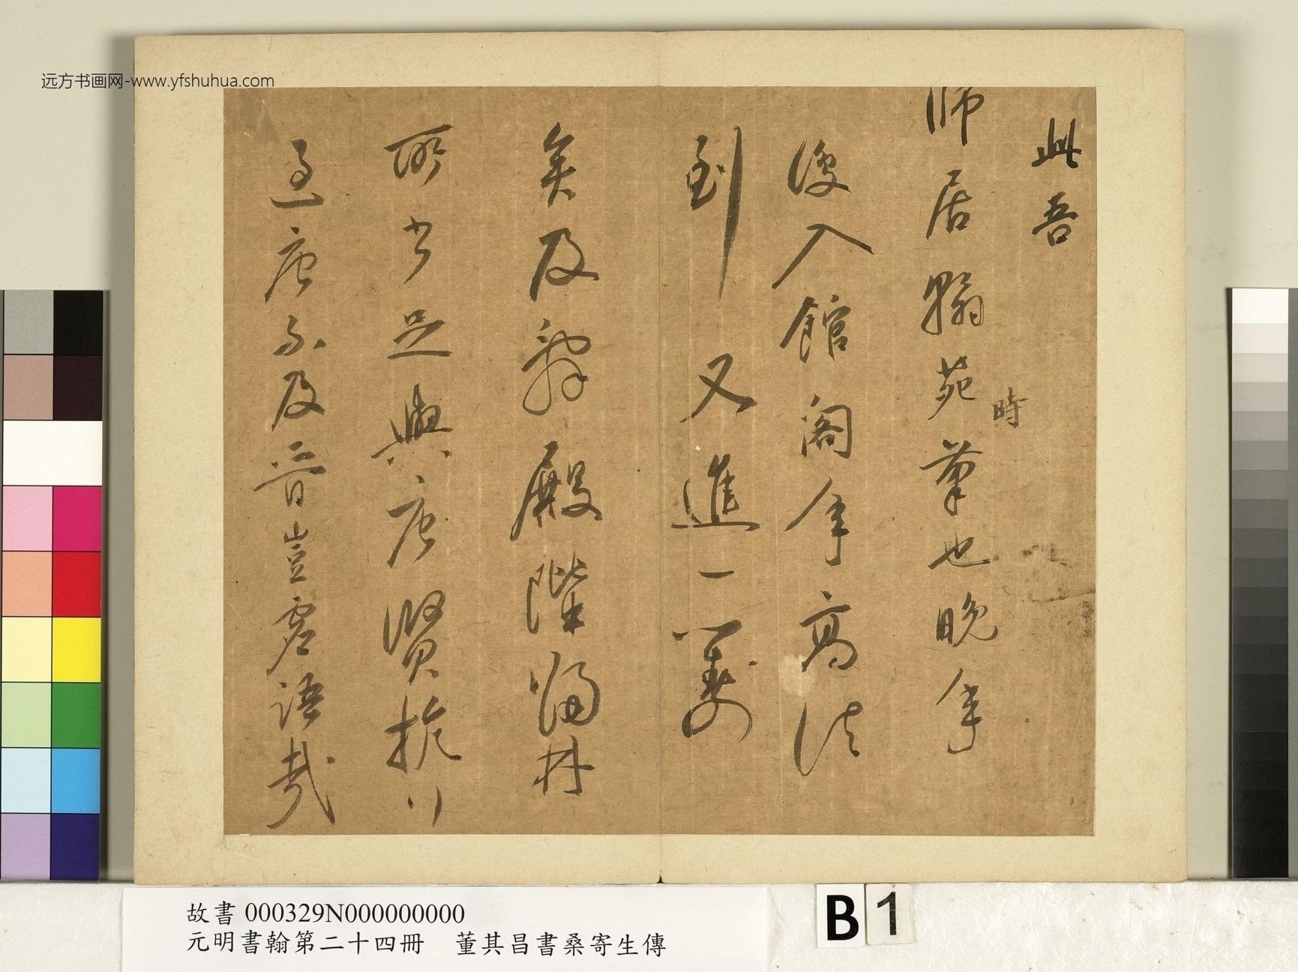 远方书画网-www.yfshuhua.com
此吾
師居翰苑時筆也晚年
復入館閣年高法
到又進一籌
矣及辭殿階歸林
所書足與唐賢抗行
過唐不及晉豈虛語哉
故書 000329N000000000
元明書翰第二十四冊 董其昌書桑寄生傳
B 1